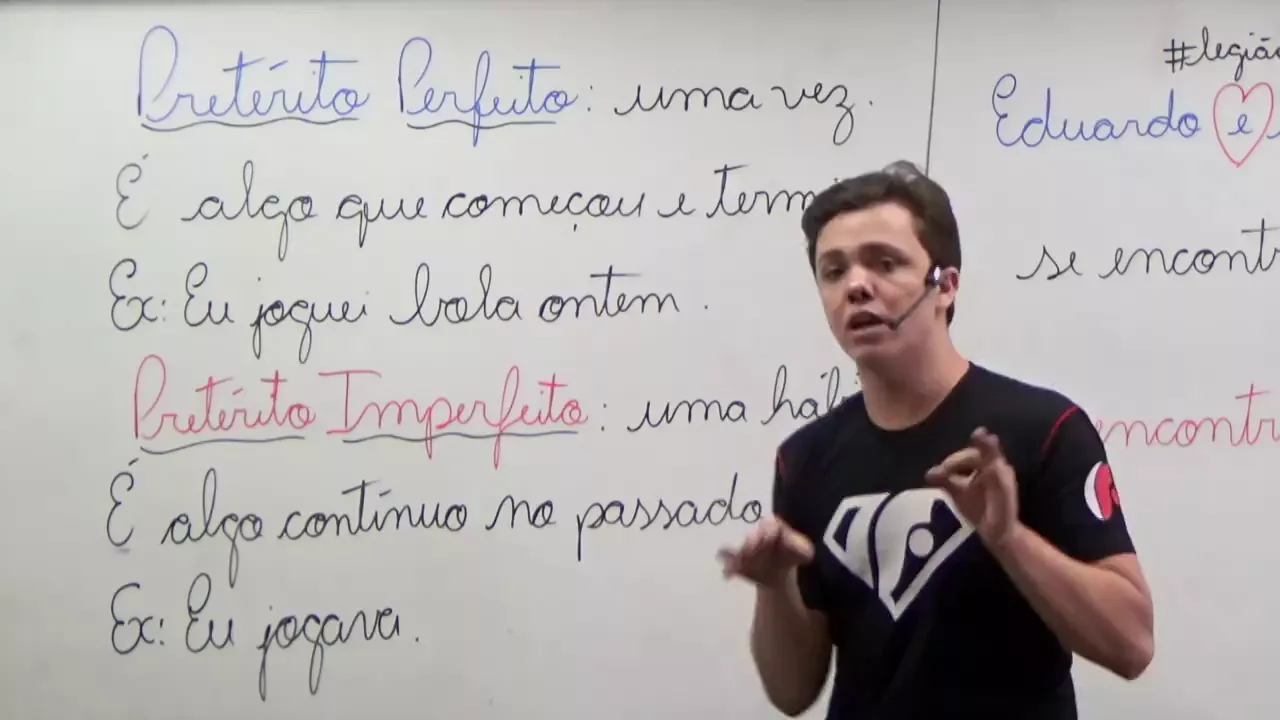 Pretérito Perfeito: uma vez.
É algo que começou e
Ex: Eu joguei bola ontem.
Pretérito Imperfeito: uma
É algo contínuo no passado
Ex: Eu jogava.
Eduardo e
se